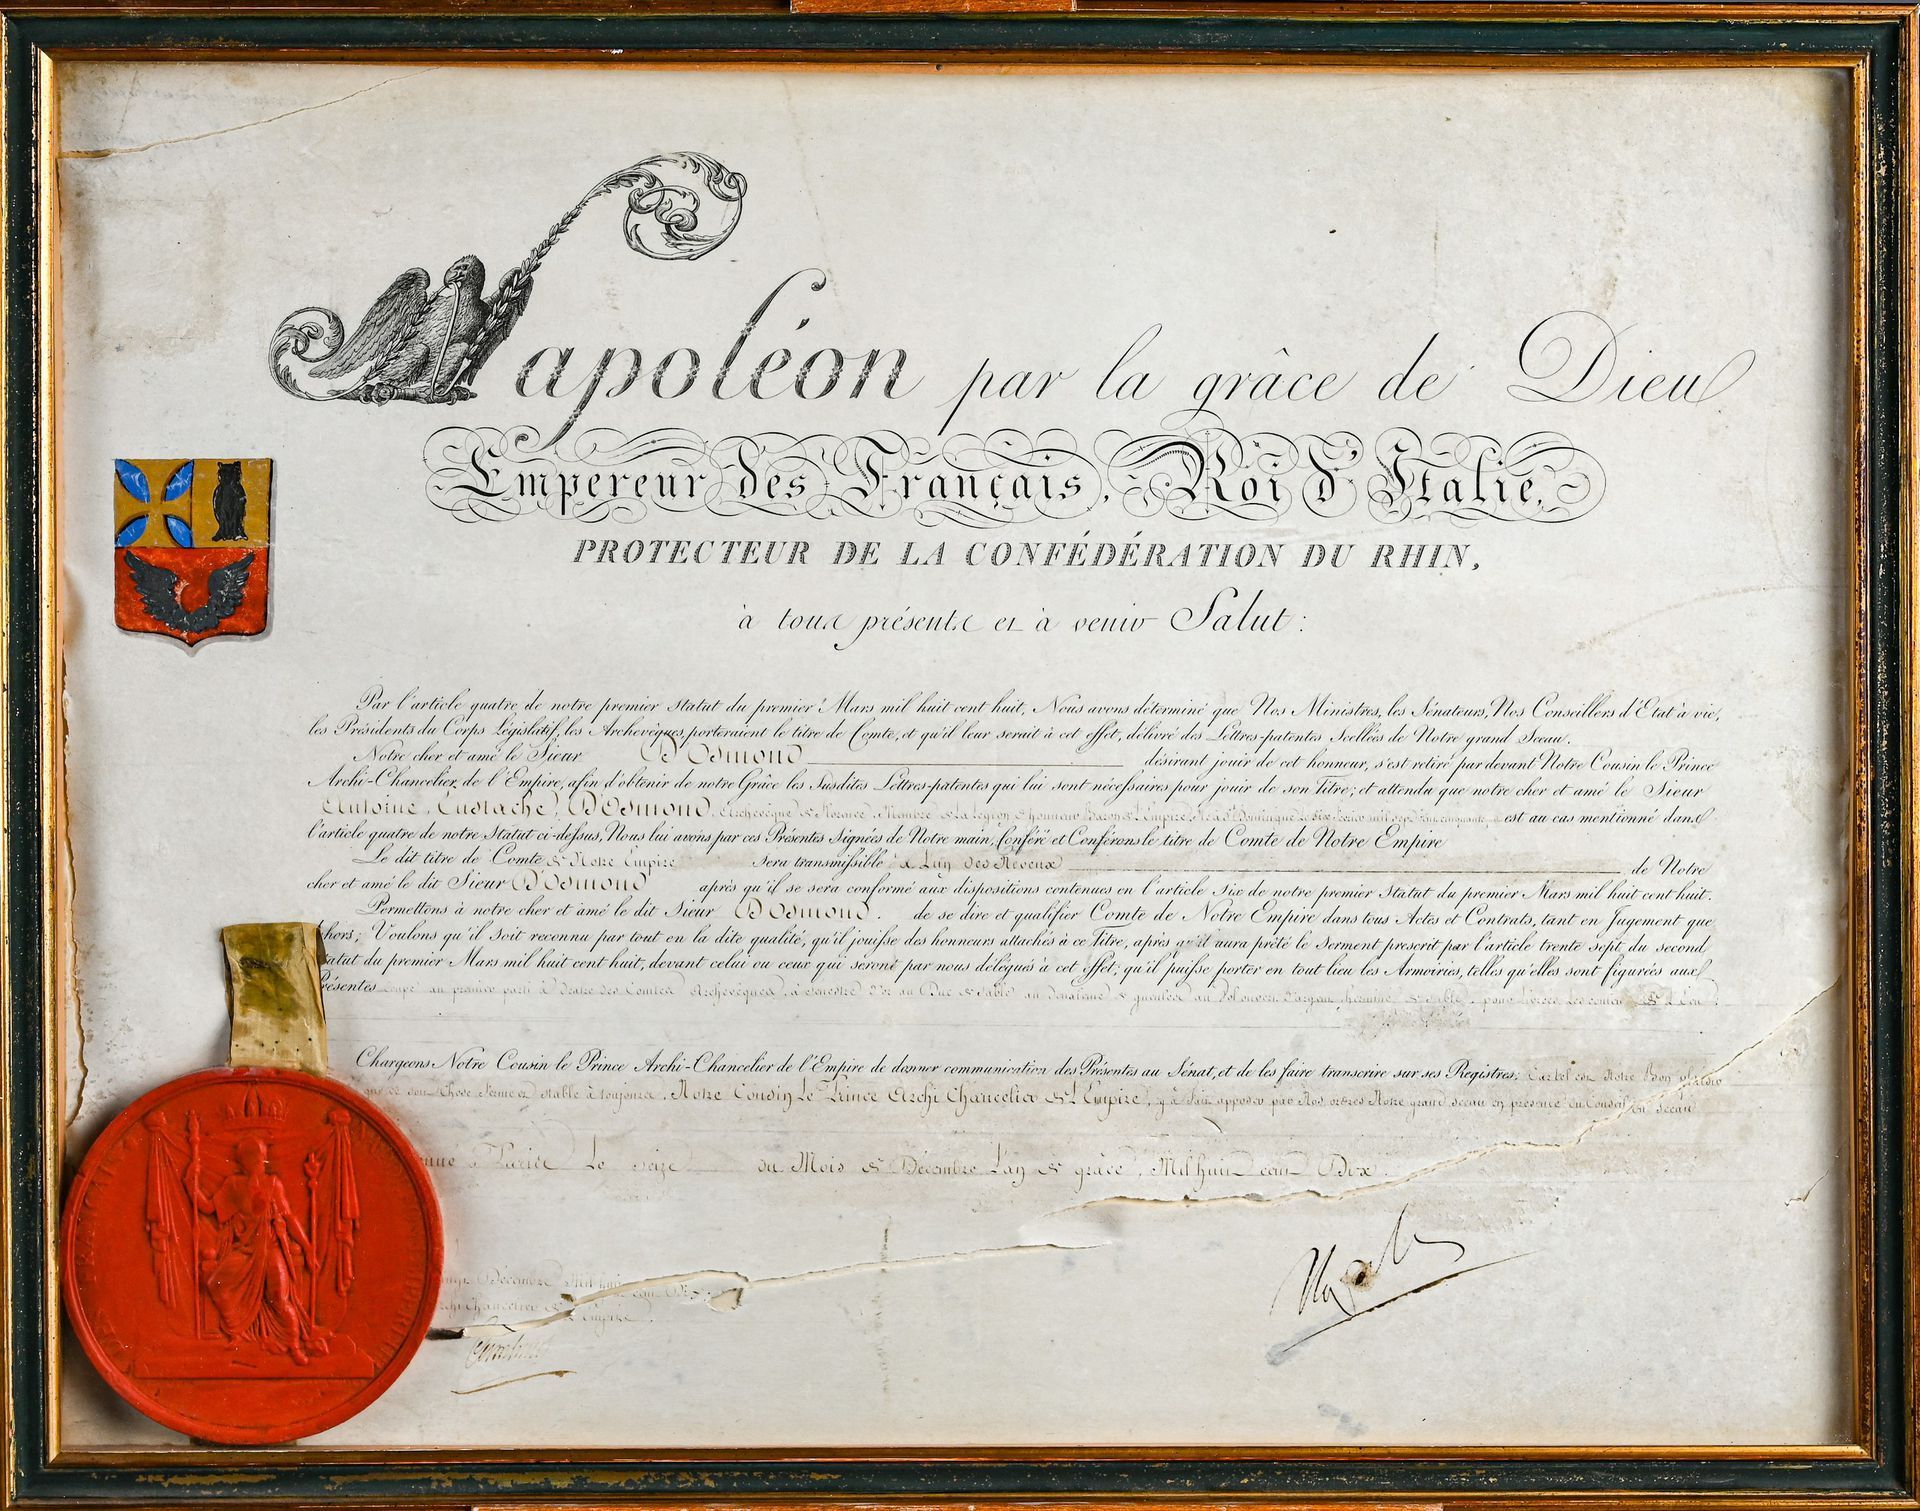 Napoléon par la grâce de Dieu
Empereur des Français, Roi d'Italie,
PROTECTEUR DE LA CONFÉDÉRATION DU RHIN,
à tous présents et à venir Salut :
Par l'article quatre de notre premier Statut du premier Mars mil huit cent huit, Nous avons déterminé que Nos Ministres, les Sénateurs, Nos Conseillers d'Etat à vie,
les Présidents du Corps Législatif, les Archevêques, porteraient le titre de Comte, et qu'il leur serait à cet effet, délivré des Lettres-patentes Scellées de Notre grand Sceau.
Notre cher et amé le Sieur D'Osmond désirant jouir de cet honneur, s'est retiré par devant Notre Cousin le Prince
Archi-Chancelier de l'Empire, afin d'obtenir de notre Grâce les Susdites Lettres-patentes qui lui sont nécessaires pour jouir de son Titre; et attendu que notre cher et amé le Sieur
Antoine, Eustache, D'Osmond, Archevêque de Membre de la légion d'honneur Baron de l'Empire, Né à St Domingue le six mil sept cent cinquante, est au cas mentionné dans
l'article quatre de notre Statut ci-dessus, Nous lui avons par ces Présentes Signées de Notre main, Conféré et Conférons le titre de Comte de Notre Empire
Le dit titre de Comte de Notre Empire sera transmissible à l'un des Neveux de Notre
cher et amé le dit Sieur D'Osmond après qu'il se sera conformé aux dispositions contenues en l'article six de notre premier Statut du premier Mars mil huit cent huit.
Permettons à notre cher et amé le dit Sieur D'Osmond. de se dire et qualifier Comte de Notre Empire dans tous Actes et Contrats, tant en Jugement que
hors; Voulons qu'il soit reconnu par tout en la dite qualité, qu'il jouisse des honneurs attachés à ce Titre, après qu'il aura prêté le Serment prescrit par l'article trente sept du second
Statut du premier Mars mil huit cent huit, devant celui ou ceux qui seront par nous délégués à cet effet; qu'il puisse porter en tout lieu les Armoiries, telles qu'elles sont figurées aux
Présentes Coupé au premier parti à dextre des Comtes Archevêques, à senestre d'or au de sable au deuxième de gueules au vol d'argent de sable, pour livrées les couleurs de l'Ecu.
Chargeons Notre Cousin le Prince Archi-Chancelier de l'Empire de donner communication des Présentes au Sénat, et de les faire transcrire sur ses Registres; Car tel est Notre Bon plaisir
ce soit Chose ferme et stable à toujours, Notre Cousin Le Prince Archi Chancelier de l'Empire, y a fait apposer par Nos ordres Notre grand sceau en présence du Conseil du Sceau
à Paris Le seize du Mois de Décembre l'an de grâce, Mil huit cent Dix.
Décembre Mil huit
cent Dix.
Archi Chancelier de
l'Empire.